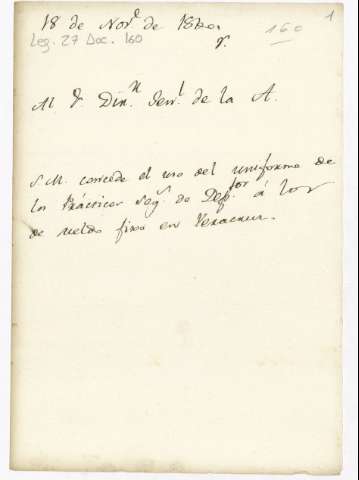 18 de Nov.e de 1820.
1
Leg. 27 Doc. 160
160
Al S.r Dir.r Gen.l de la A.
S. M. concede el uso del uniforme de
los Prácticos de Dep.tos á los
de sueldo fixo en Veracruz.